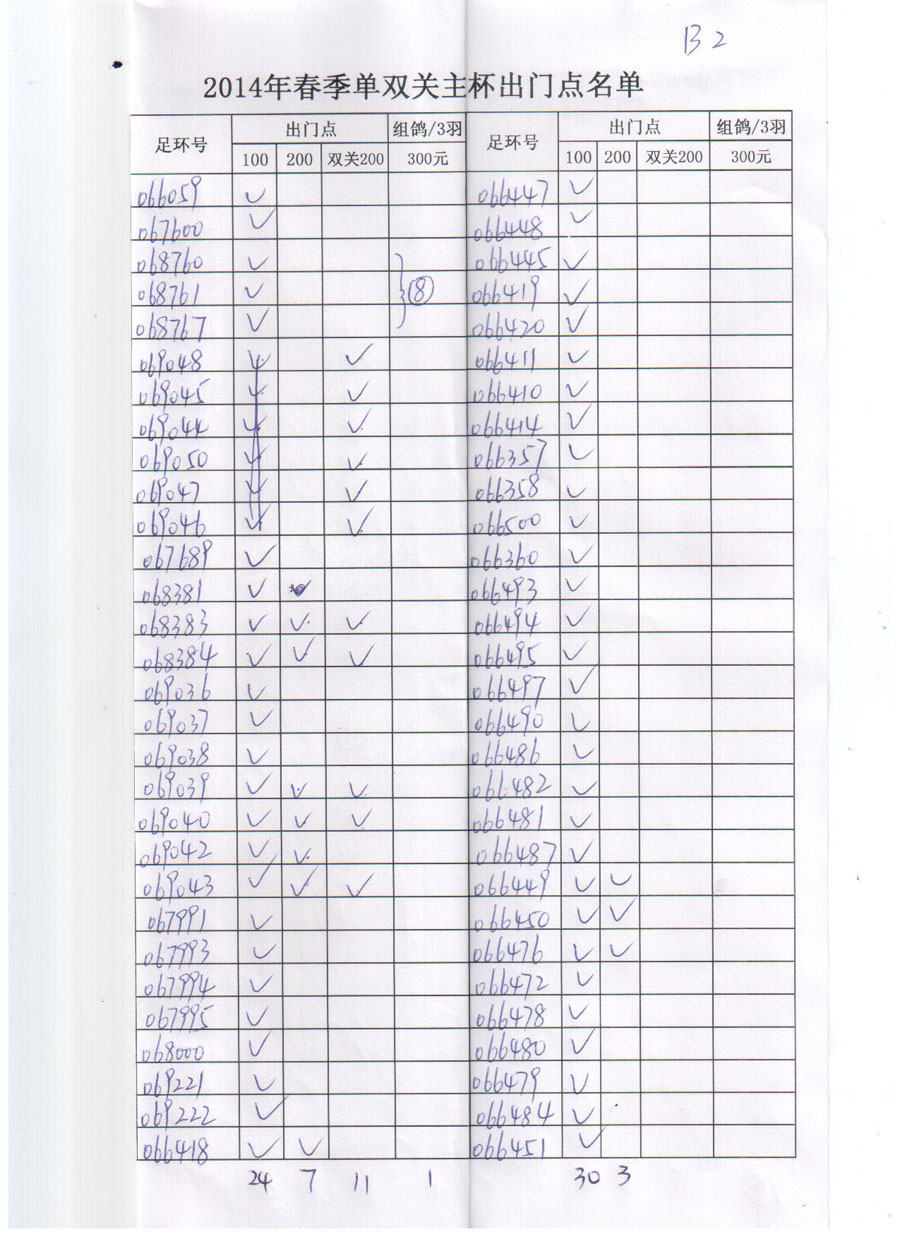 B2
2014年春季单双关主杯出门点名单
足环号 出门点 组鸽/3羽 足环号 出门点 组鸽/3羽
100 200 双关200 300元 100 200 双关200 300元
066059 ✓ 066447 ✓
067600 ✓ 066448 ✓
068760 ✓ 066445 ✓
068761 ✓ ⑧ 066419 ✓
068767 ✓ 066420 ✓
069048 ✓ ✓ 066411 ✓
069045 ✓ ✓ 066410 ✓
069044 ✓ ✓ 066414 ✓
069050 ✓ ✓ 066357 ✓
069047 ✓ ✓ 066358 ✓
069046 ✓ ✓ 066500 ✓
067689 ✓ 066360 ✓
068381 ✓ 066493 ✓
068383 ✓ ✓ ✓ 066494 ✓
068384 ✓ ✓ ✓ 066495 ✓
069036 ✓ 066497 ✓
069037 ✓ 066490 ✓
069038 ✓ 066486 ✓
069039 ✓ ✓ ✓ 066482 ✓
069040 ✓ ✓ ✓ 066481 ✓
069042 ✓ ✓ 066487 ✓
069043 ✓ ✓ ✓ 066449 ✓ ✓
067991 ✓ 066450 ✓ ✓
067993 ✓ 066476 ✓ ✓
067994 ✓ 066472 ✓
067995 ✓ 066478 ✓
068000 ✓ 066480 ✓
069221 ✓ 066479 ✓
069222 ✓ 066484 ✓
066418 ✓ ✓ 066451 ✓
24 7 11 1 30 3